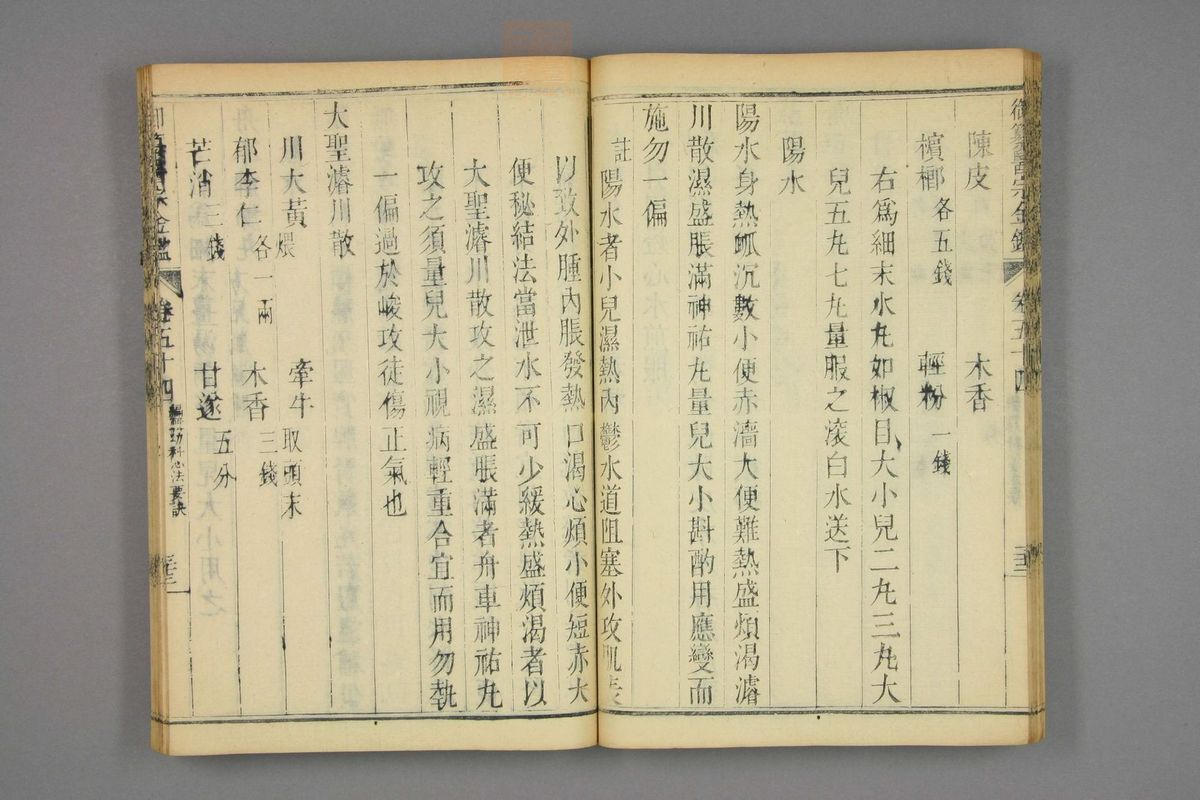 御纂醫宗金鑑 卷五十四
陳皮 木香
檳榔各五錢 輕粉一錢
右爲細末水丸如椒目大小兒二丸三丸大
兒五丸七丸量服之滾白水送下
陽水
陽水身熱脈沉數小便赤濇大便難熱盛煩渴濬
川散濕盛脹滿神祐丸量兒大小斟酌用應變而
施勿一偏
註陽水者小兒濕熱內鬱水道阻塞外攻肌表
以致外腫內脹發熱口渴心煩小便短赤大
便秘結法當泄水不可少緩熱盛煩渴者以
大聖濬川散攻之濕盛脹滿者舟車神祐丸
攻之須量兒大小視病輕重合宜而用勿執
一偏過於峻攻徒傷正氣也
大聖濬川散
川大黃煨 牽牛取頭末
郁李仁各一兩 木香三錢
芒消三錢 甘遂五分
御纂醫宗金鑑 卷五十四 編輯幼科心法要訣